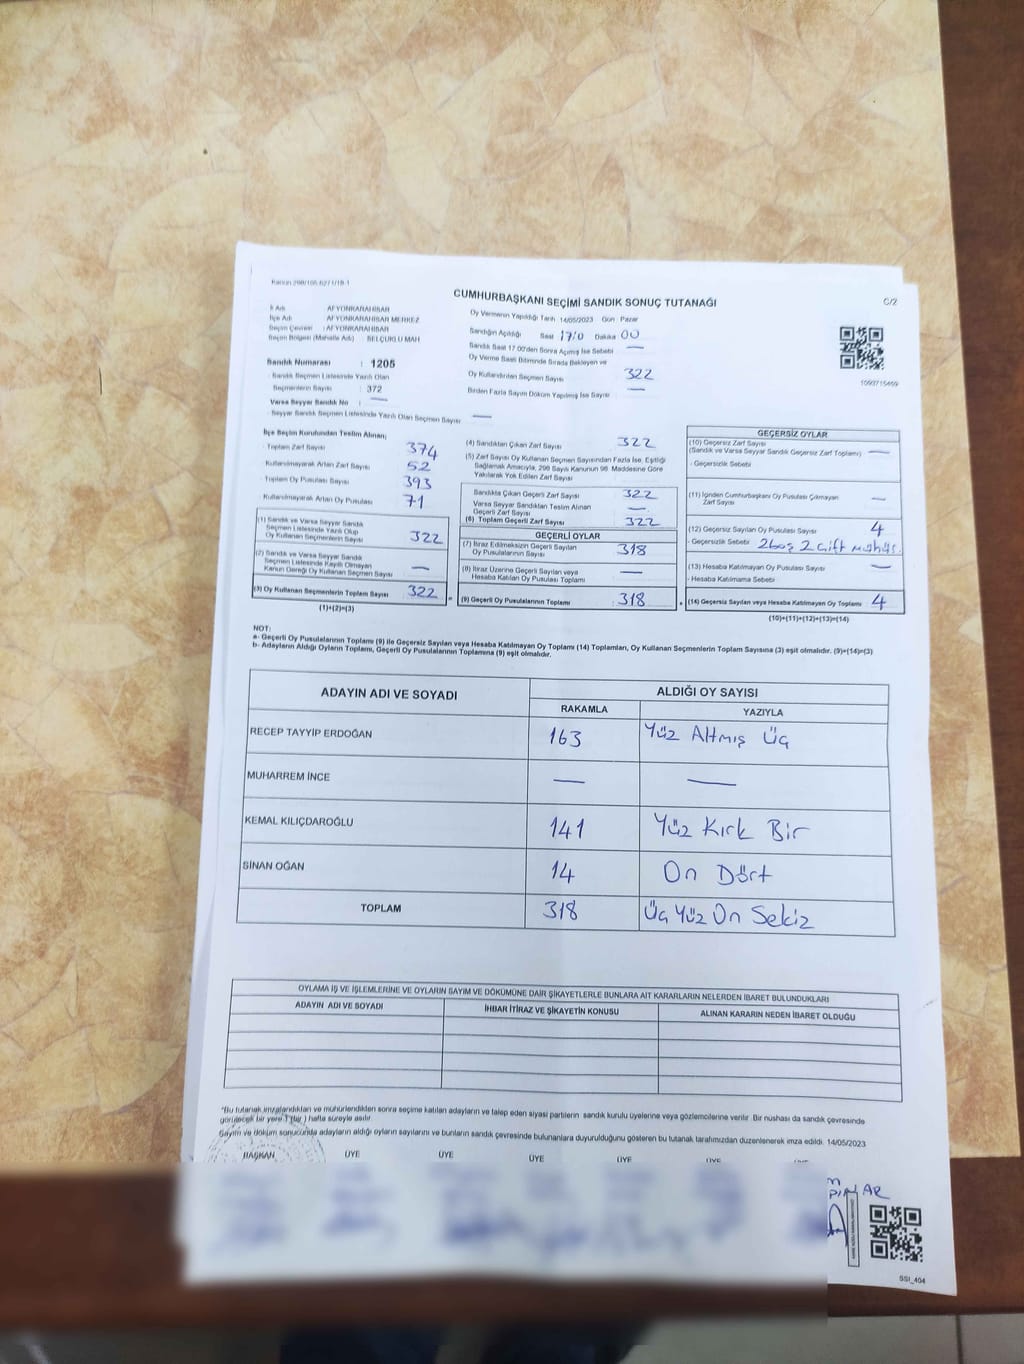 Kanun 298/105-6271/18-1
CUMHURBAŞKANI SEÇİMİ SANDIK SONUÇ TUTANAĞI
C/2
İl Adı : AFYONKARAHİSAR
İlçe Adı : AFYONKARAHİSAR MERKEZ
Seçim Çevresi : AFYONKARAHİSAR
Seçim Bölgesi (Mahalle Adı) : SELÇUKLU MAH
Sandık Numarası : 1205
Sandık Seçmen Listesinde Yazılı Olan
Seçmenlerin Sayısı : 372
Varsa Seyyar Sandık No : —
Seyyar Sandık Seçmen Listesinde Yazılı Olan Seçmen Sayısı —
Oy Vermenin Yapıldığı Tarih 14/05/2023 Gün : Pazar
Sandığın Açıldığı Saat 17/0 Dakika 00
Sandık Saat 17.00'den Sonra Açılmış İse Sebebi —
Oy Verme Saati Bitiminde Sırada Bekleyen ve
Oy Kullandırılan Seçmen Sayısı 322
Birden Fazla Sayım Döküm Yapılmış İse Sayısı —
1093715469
İlçe Seçim Kurulundan Teslim Alınan;
Toplam Zarf Sayısı 374
Kullanılmayarak Artan Zarf Sayısı 52
Toplam Oy Pusulası Sayısı 393
Kullanılmayarak Artan Oy Pusulası 71
(1) Sandık ve Varsa Seyyar Sandık
Seçmen Listesinde Yazılı Olup
Oy Kullanan Seçmenlerin Sayısı 322
(2) Sandık ve Varsa Seyyar Sandık
Seçmen Listesinde Kayıtlı Olmayan
Kanun Gereği Oy Kullanan Seçmen Sayısı —
(3) Oy Kullanan Seçmenlerin Toplam Sayısı 322 =
(1)+(2)=(3)
(4) Sandıktan Çıkan Zarf Sayısı 322
(5) Zarf Sayısı Oy Kullanan Seçmen Sayısından Fazla İse, Eşitliği
Sağlamak Amacıyla, 298 Sayılı Kanunun 98. Maddesine Göre
Yakılarak Yok Edilen Zarf Sayısı
Sandıkta Çıkan Geçerli Zarf Sayısı 322
Varsa Seyyar Sandıktan Teslim Alınan
Geçerli Zarf Sayısı —
(6) Toplam Geçerli Zarf Sayısı 322
GEÇERLİ OYLAR
(7) İtiraz Edilmeksizin Geçerli Sayılan
Oy Pusulalarının Sayısı 318
(8) İtiraz Üzerine Geçerli Sayılan veya
Hesaba Katılan Oy Pusulası Toplamı —
(9) Geçerli Oy Pusulalarının Toplamı 318 +
GEÇERSİZ OYLAR
(10) Geçersiz Zarf Sayısı
(Sandık ve Varsa Seyyar Sandık Geçersiz Zarf Toplamı) —
- Geçersizlik Sebebi
(11) İçinden Cumhurbaşkanı Oy Pusulası Çıkmayan
Zarf Sayısı —
(12) Geçersiz Sayılan Oy Pusulası Sayısı 4
- Geçersizlik Sebebi 2 boş 2 çift mühür.
(13) Hesaba Katılmayan Oy Pusulası Sayısı —
- Hesaba Katılmama Sebebi
(14) Geçersiz Sayılan veya Hesaba Katılmayan Oy Toplamı 4
(10)+(11)+(12)+(13)=(14)
NOT:
a- Geçerli Oy Pusulalarının Toplamı (9) ile Geçersiz Sayılan veya Hesaba Katılmayan Oy Toplamı (14) Toplamları, Oy Kullanan Seçmenlerin Toplam Sayısına (3) eşit olmalıdır. (9)+(14)=(3)
b- Adayların Aldığı Oyların Toplamı, Geçerli Oy Pusulalarının Toplamına (9) eşit olmalıdır.
ADAYIN ADI VE SOYADI
ALDIĞI OY SAYISI
RAKAMLA YAZIYLA
RECEP TAYYİP ERDOĞAN 163 Yüz Altmış Üç
MUHARREM İNCE — —
KEMAL KILIÇDAROĞLU 141 Yüz Kırk Bir
SİNAN OĞAN 14 On Dört
TOPLAM 318 Üç Yüz On Sekiz
OYLAMA İŞ VE İŞLEMLERİNE VE OYLARIN SAYIM VE DÖKÜMÜNE DAİR ŞİKAYETLERLE BUNLARA AİT KARARLARIN NELERDEN İBARET BULUNDUKLARI
ADAYIN ADI VE SOYADI İHBAR İTİRAZ VE ŞİKAYETİN KONUSU ALINAN KARARIN NEDEN İBARET OLDUĞU
*Bu tutanak imzalandıktan ve mühürlendikten sonra seçime katılan adayların ve talep eden siyasi partilerin sandık kurulu üyelerine veya gözlemcilerine verilir. Bir nüshası da sandık çevresinde
görülecek bir yere 1 (bir) hafta süreyle asılır.
Sayım ve döküm sonucunda adayların aldığı oyların sayılarını ve bunların sandık çevresinde bulunanlara duyurulduğunu gösteren bu tutanak tarafımızdan düzenlenerek imza edildi. 14/05/2023
BAŞKAN ÜYE ÜYE ÜYE ÜYE ÜYE
SSI_404